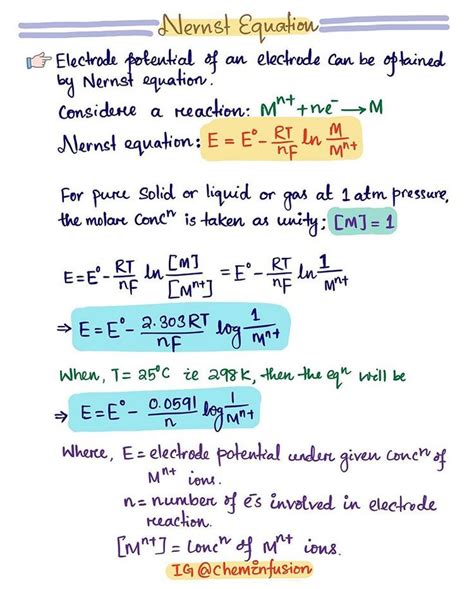 Nernst Equation
Electrode potential of an electrode can be obtained
by Nernst equation.
Considere a reaction: Mⁿ⁺ + ne⁻ → M
Nernst equation: E = E° - RT/nF ln M/Mⁿ⁺
For pure solid or liquid or gas at 1 atm pressure,
the molare concⁿ is taken as unity; [M] = 1
E = E° - RT/nF ln [M]/[Mⁿ⁺] = E° - RT/nF ln 1/Mⁿ⁺
⇒ E = E° - 2.303RT/nF log 1/Mⁿ⁺
When, T = 25°C ie 298K, then the eqⁿ will be
⇒ E = E° - 0.0591/n log 1/Mⁿ⁺
Where, E = electrode potential under given concⁿ of
Mⁿ⁺ ions.
n = number of e⁻s involved in electrode
reaction.
[Mⁿ⁺] = Concⁿ of Mⁿ⁺ ions.
IG @cheminfusion